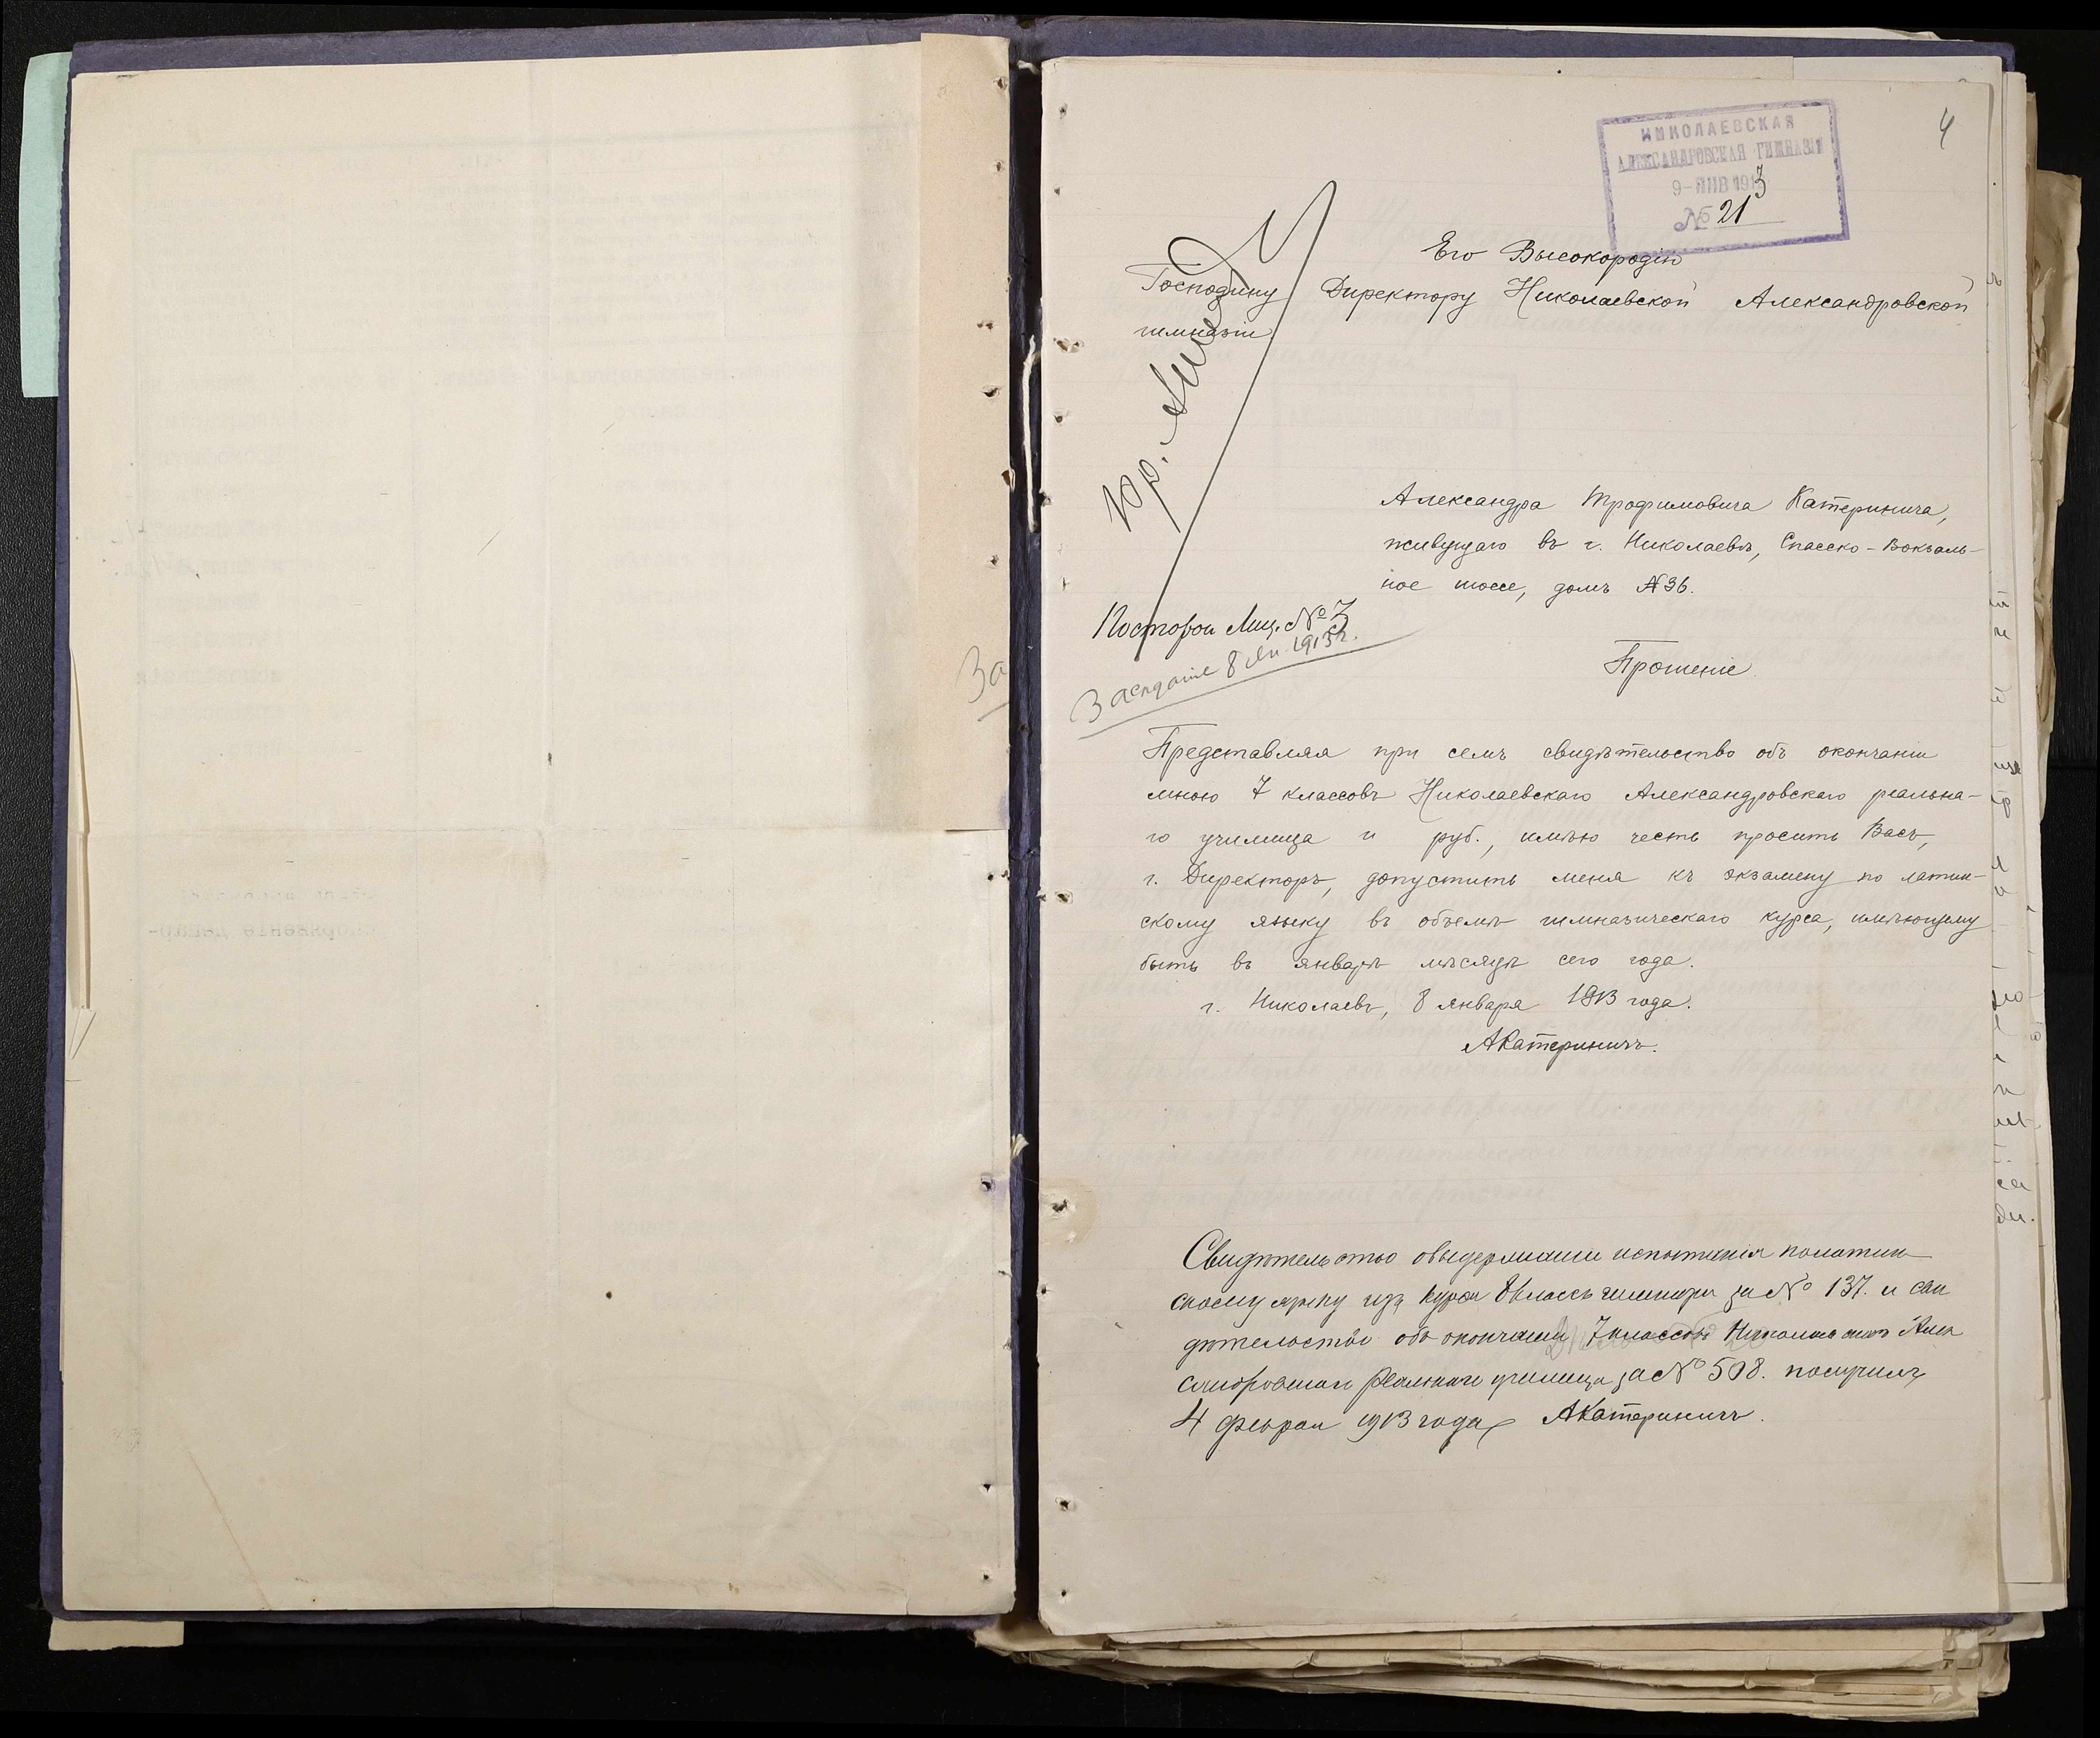 4
НИКОЛАЕВСКАЯ
АЛЕКСАНДРОВСКАЯ ГИМНАЗІЯ
9-ЯНВ 1913
№ 21
Его Высокородію
Господину Директору Николаевской Александровской
гимназіи
Александра Трофимовича Катеринича,
живущаго въ г. Николаевѣ, Спасско-Вокзаль-
ное шоссе, домъ №36.
Посторон Лиц. № 3
Засѣданіе 8 Ян. 1913 г.
Прошеніе.
Представляя при семъ свидѣтельство объ окончаніи
мною 7 классовъ Николаевскаго Александровскаго реальна-
го училища и руб., имѣю честь просить Васъ,
г. Директоръ, допустить меня къ экзамену по латин-
скому языку въ объемѣ гимназическаго курса, имѣющему
быть въ январѣ мѣсяцѣ сего года.
г. Николаевъ, 8 января 1913 года.
АКатериничъ.
Свидѣтельство о выдержаніи испытанія по латин
скому языку изъ курса 8 классъ гимназіи за № 137. и сви
дѣтельство объ окончаніи 7 классовъ Николаевскаго Алек
сандровскаго реальнаго училища за № 508. получилъ
4 феврал 1913 года АКатериничъ.
За